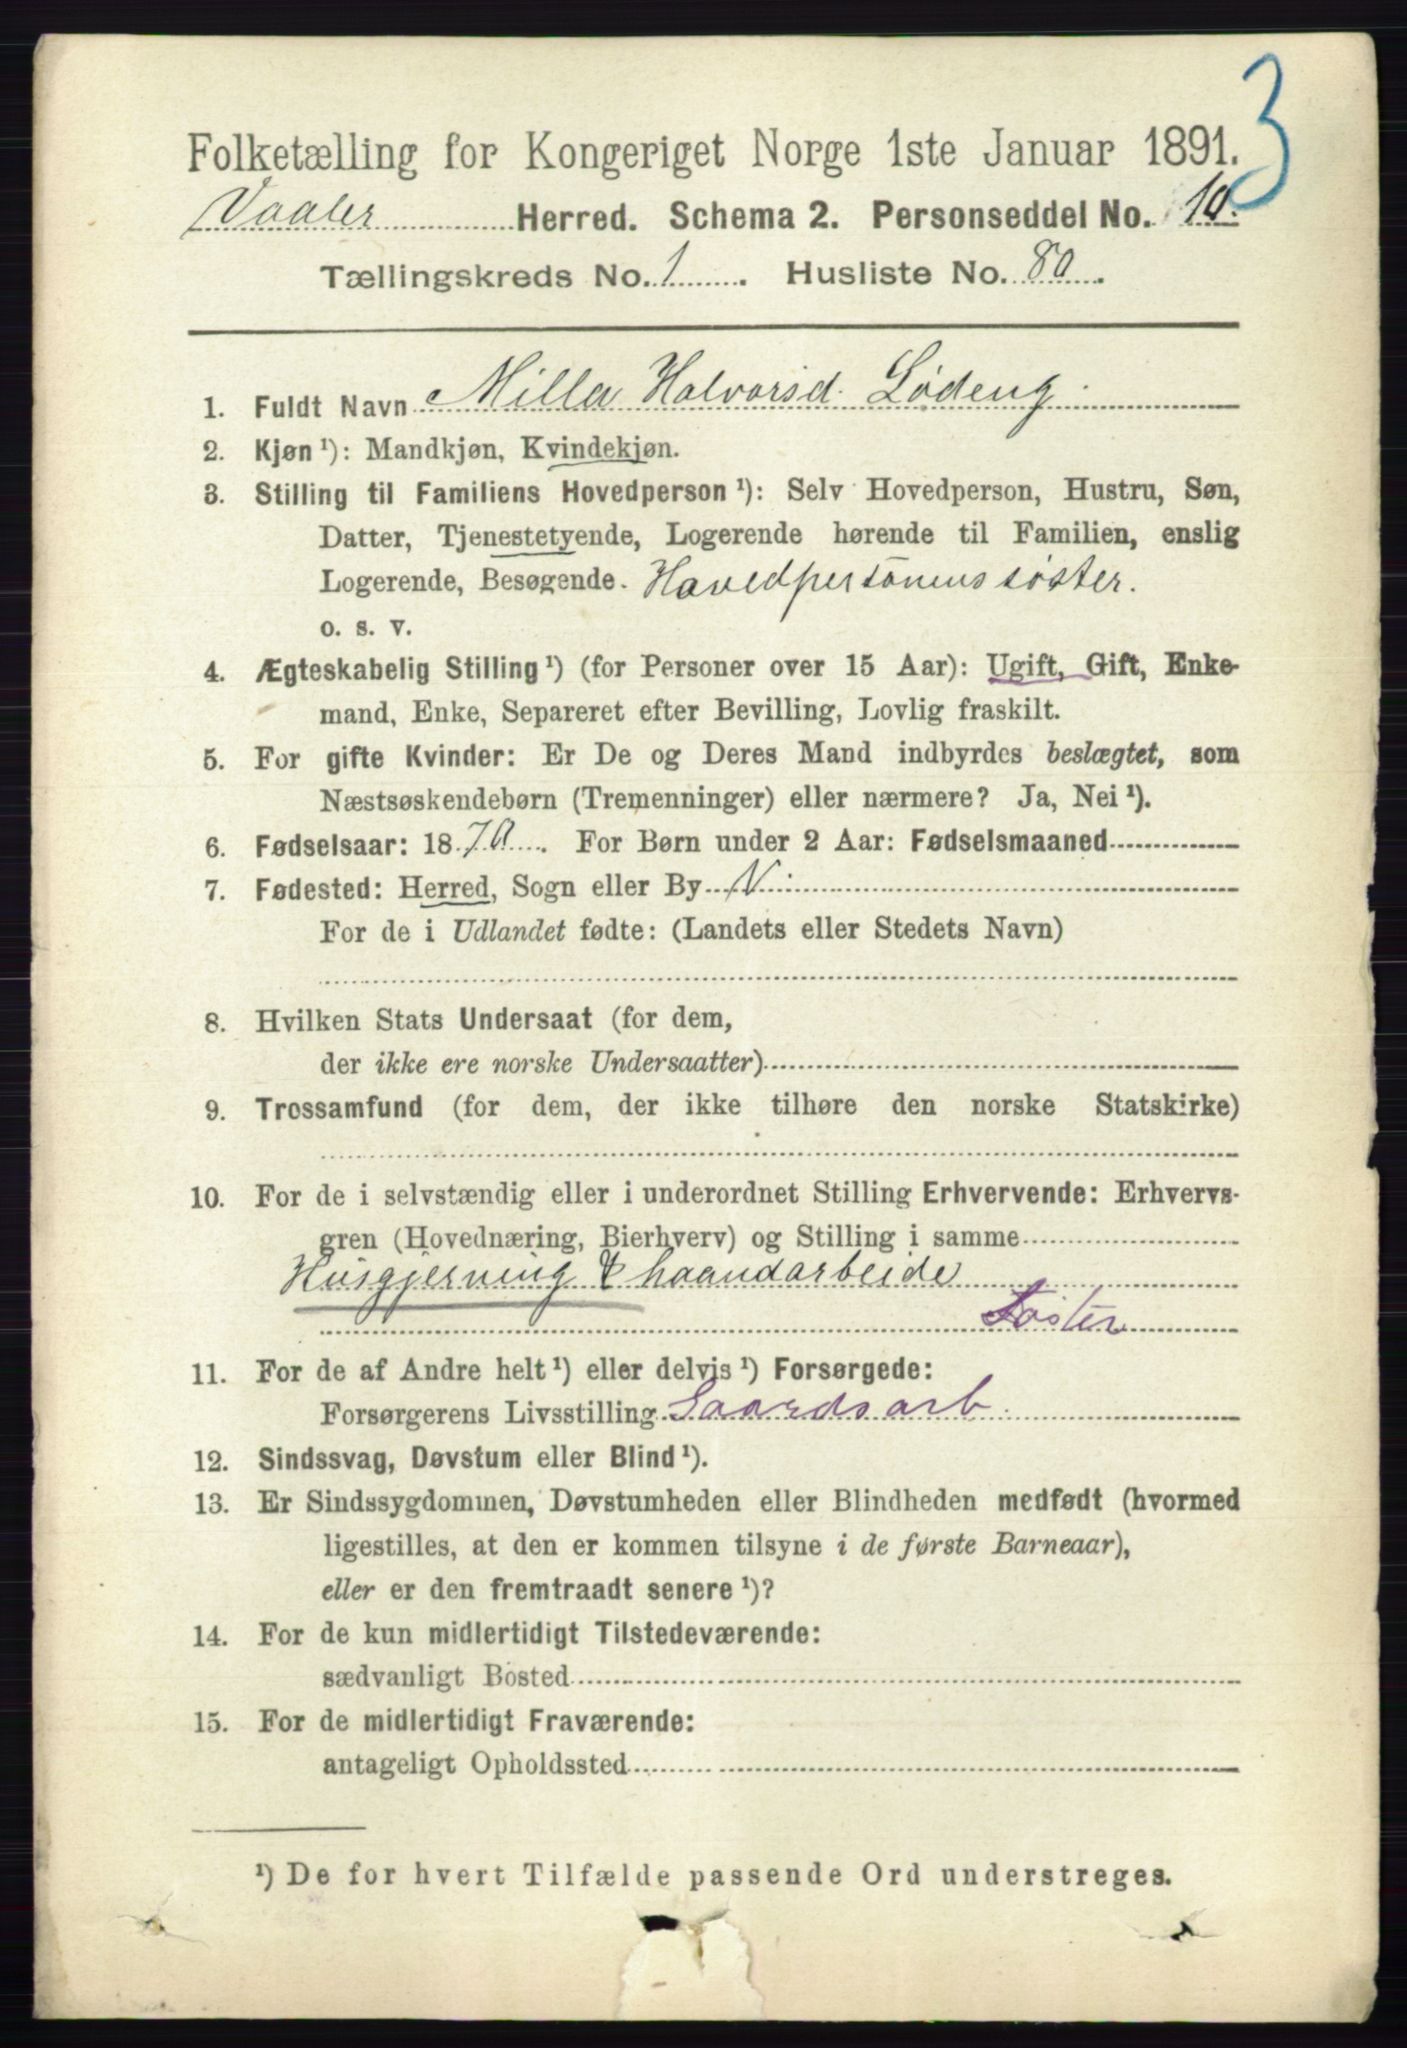 3
Folketælling for Kongeriget Norge 1ste Januar 1891.
Vaaler Herred. Schema 2. Personseddel No. 10.
Tællingskreds No. 1. Husliste No. 80.
1. Fuldt Navn Milla Halvorsd. Lødeng.
2. Kjøn ¹): Mandkjøn, Kvindekjøn.
3. Stilling til Familiens Hovedperson ¹): Selv Hovedperson, Hustru, Søn,
Datter, Tjenestetyende, Logerende hørende til Familien, enslig
Logerende, Besøgende. Hovedpersonens søster.
o. s. v.
4. Ægteskabelig Stilling ¹) (for Personer over 15 Aar): Ugift, Gift, Enke-
mand, Enke, Separeret efter Bevilling, Lovlig fraskilt.
5. For gifte Kvinder: Er De og Deres Mand indbyrdes beslægtet, som
Næstsøskendebørn (Tremenninger) eller nærmere? Ja, Nei ¹).
6. Fødselsaar: 1870. For Børn under 2 Aar: Fødselsmaaned
7. Fødested: Herred, Sogn eller By V:
For de i Udlandet fødte: (Landets eller Stedets Navn)
8. Hvilken Stats Undersaat (for dem,
der ikke ere norske Undersaatter)
9. Trossamfund (for dem, der ikke tilhøre den norske Statskirke)
10. For de i selvstændig eller i underordnet Stilling Erhvervende: Erhvervs-
gren (Hovednæring, Bierhverv) og Stilling i samme
Husgjerning & haandarbeide
Søster
11. For de af Andre helt ¹) eller delvis ¹) Forsørgede:
Forsørgerens Livsstilling Gaardsarb.
12. Sindssvag, Døvstum eller Blind ¹).
13. Er Sindssygdommen, Døvstumheden eller Blindheden medfødt (hvormed
ligestilles, at den er kommen tilsyne i de første Barneaar),
eller er den fremtraadt senere ¹)?
14. For de kun midlertidigt Tilstedeværende:
sædvanligt Bosted
15. For de midlertidigt Fraværende:
antageligt Opholdssted
¹) De for hvert Tilfælde passende Ord understreges.